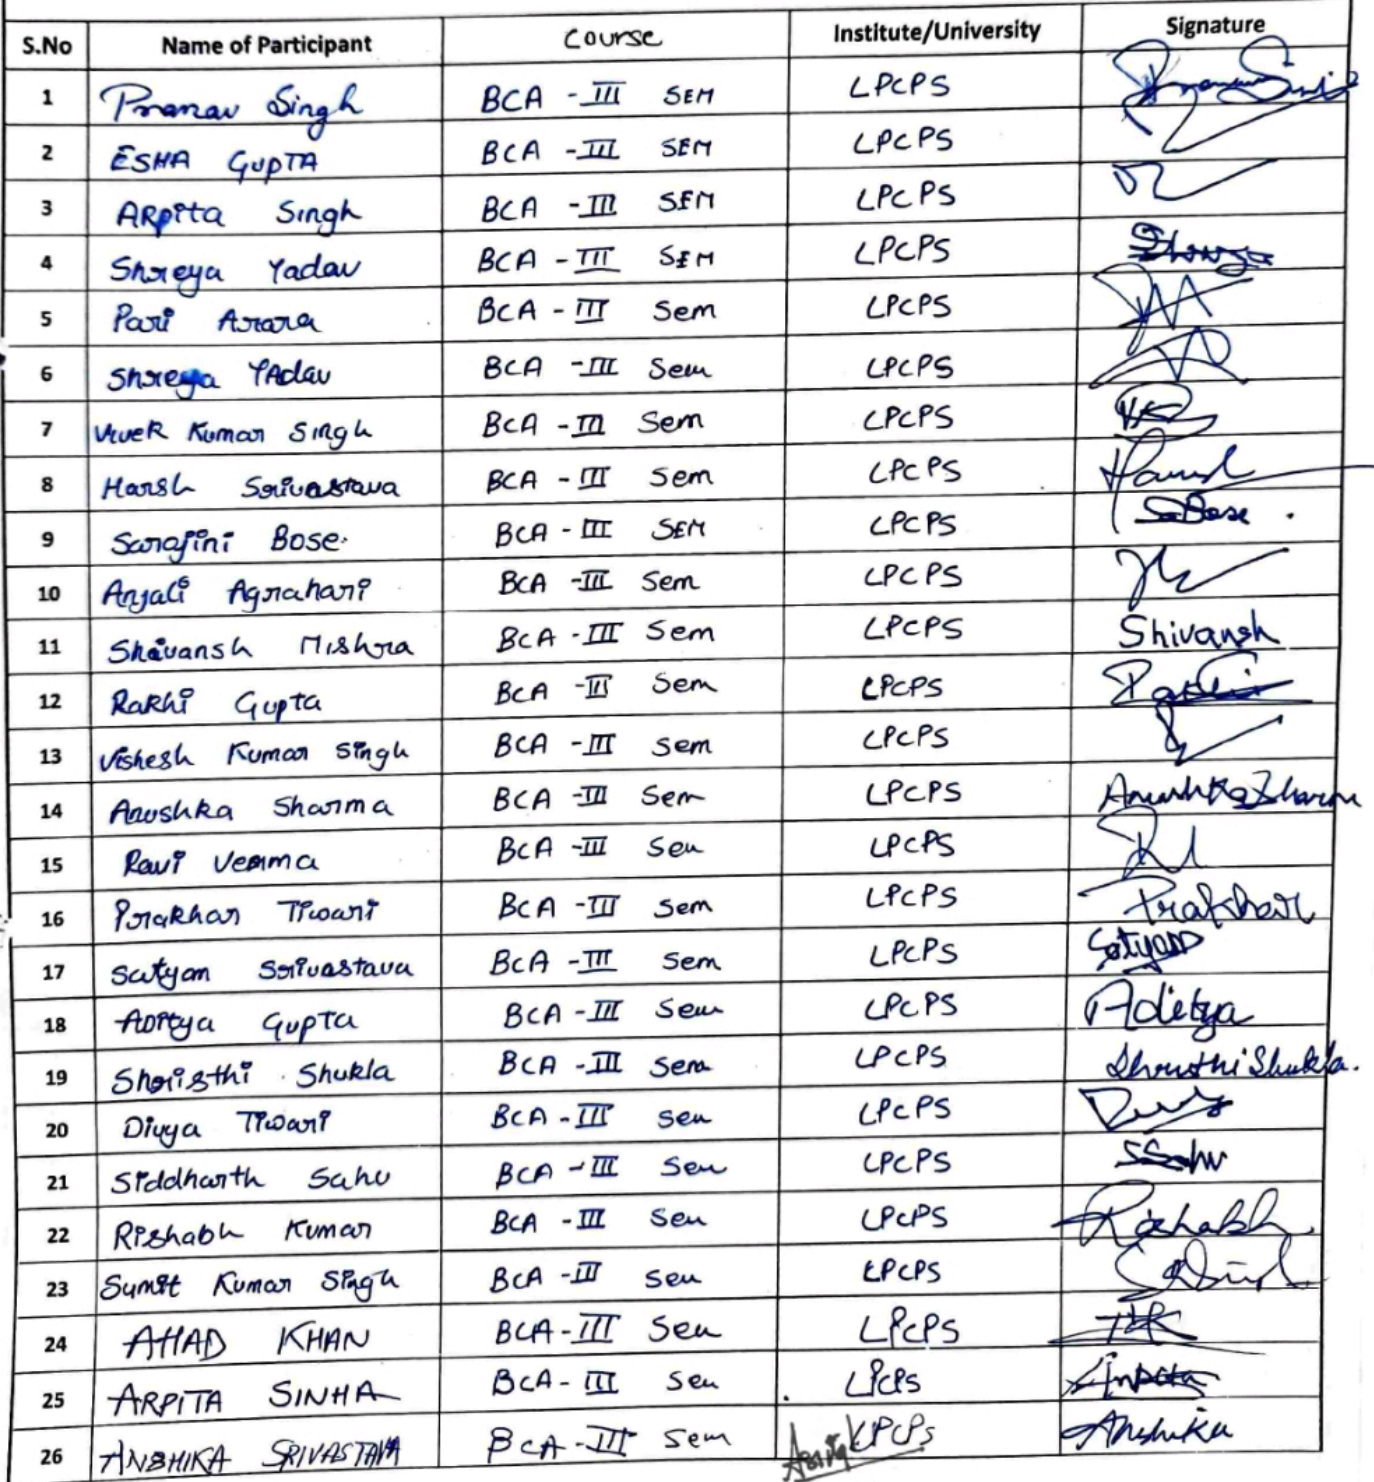 S.No Name of Participant Course Institute/University Signature
1 Pranav Singh BCA - III SEM LPCPS
2 ESHA GUPTA BCA - III SEM LPCPS
3 ARpita Singh BCA - III SEM LPCPS
4 Shreya Yadav BCA - III SEM LPCPS Shreya
5 Pari Arora BCA - III Sem LPCPS
6 Shreya YAdav BCA - III Sem LPCPS
7 Vivek Kumar Singh BCA - III Sem LPCPS
8 Harsh Srivastava BCA - III Sem LPCPS Harsh
9 Sarojini Bose. BCA - III SEM LPCPS SBose.
10 Anjali Agrahari BCA - III Sem LPCPS
11 Shivansh Mishra BCA - III Sem LPCPS Shivansh
12 Rakhi Gupta BCA - III Sem LPCPS
13 Vishesh Kumar Singh BCA - III Sem LPCPS
14 Anushka Sharma BCA - III Sem LPCPS Anushka Sharma
15 Ravi Verma BCA - III Sem LPCPS
16 Prakhar Tiwari BCA - III Sem LPCPS Prakhar
17 Satyam Srivastava BCA - III Sem LPCPS Satyam
18 Aditya Gupta BCA - III Sem LPCPS Aditya
19 Shristhi Shukla BCA - III Sem LPCPS Shristhi Shukla.
20 Divya Tiwari BCA - III Sem LPCPS
21 Siddharth Sahu BCA - III Sem LPCPS SSahu
22 Rishabh Kumar BCA - III Sem LPCPS Rishabh
23 Sumit Kumar Singh BCA - III Sem LPCPS
24 AHAD KHAN BCA - III Sem LPCPS
25 ARPITA SINHA BCA - III Sem LPCPS Arpita
26 ANSHIKA SRIVASTAVA BCA - III Sem LPCPS Anshika